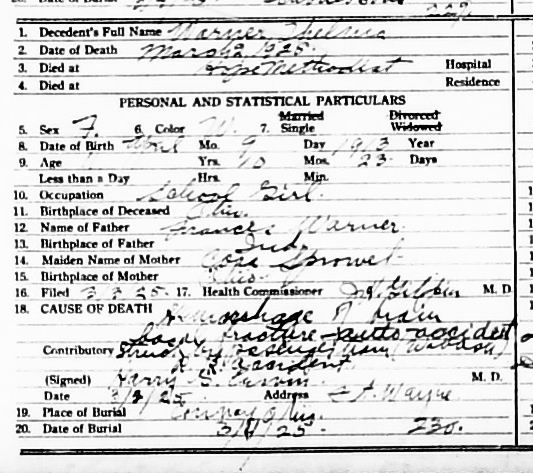 1. Decedent's Full Name Warner Thelma
2. Date of Death Mar 2, 1925.
3. Died at Hope Methodist Hospital
4. Died at Residence
PERSONAL AND STATISTICAL PARTICULARS
Married Divorced
5. Sex F. 6. Color W. 7. Single Widowed
8. Date of Birth April Mo. 9 Day 1913 Year
9. Age Yrs. 10 Mos. 23 Days
Less than a Day Hrs. Min.
10. Occupation School Girl
11. Birthplace of Deceased Ohio
12. Name of Father Warner
13. Birthplace of Father Ind.
14. Maiden Name of Mother Sprowel
15. Birthplace of Mother Ohio
16. Filed 3/3/25 17. Health Commissioner M. D.
18. CAUSE OF DEATH Hemorrhage of brain
fracture auto accident
Contributory Struck by passenger train (Wabash)
R.R. accident
(Signed) Harry M. D.
Date 3/2/25 Address Ft. Wayne
19. Place of Burial
20. Date of Burial 3/ /25. 230.